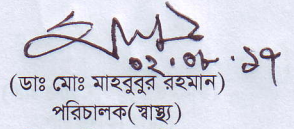 ০২.০৮.১৭
(ডাঃ মোঃ মাহবুবুর রহমান)
পরিচালক(স্বাস্থ্য)